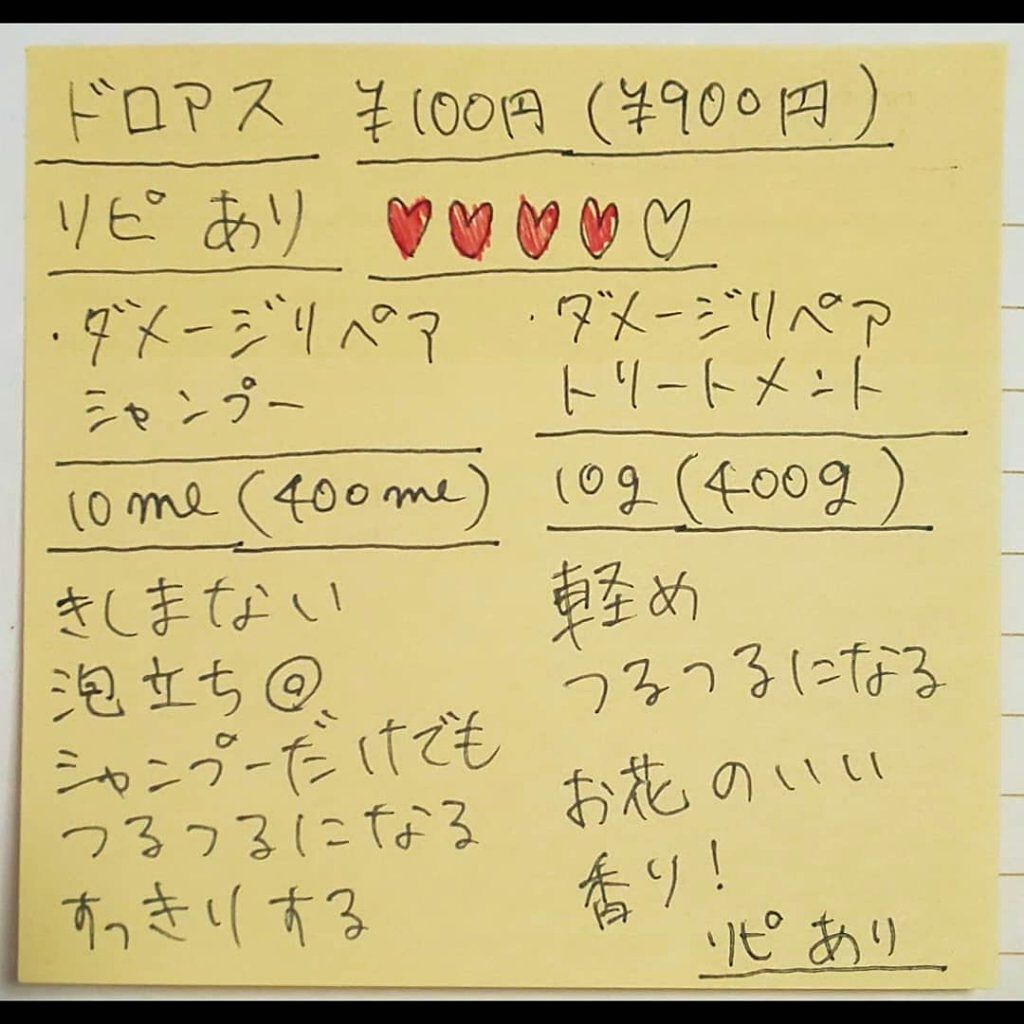 ドロアス ¥100円(¥900円)
リピあり ♥♥♥♥♡
・ダメージリペア
シャンプー
10ml(400ml)
きしまない
泡立ち◎
シャンプーだけでも
つるつるになる
すっきりする
・ダメージリペア
トリートメント
10g(400g)
軽め
つるつるになる
お花のいい
香り!
リピあり